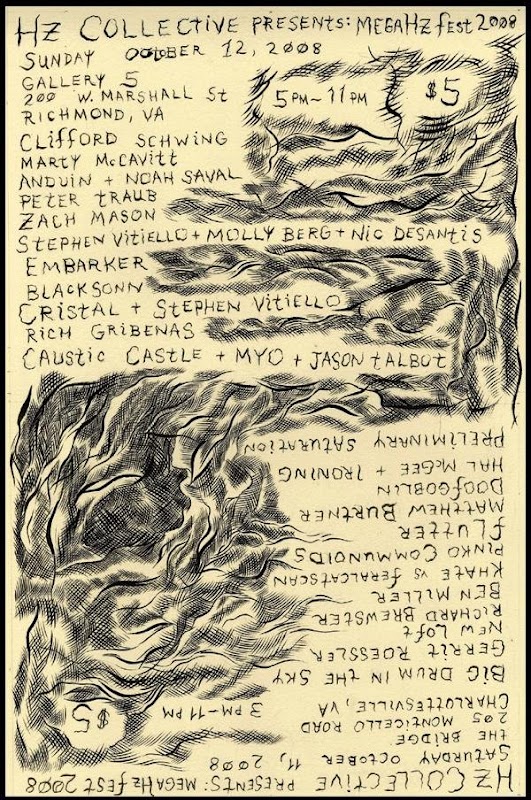 Hz COLLECTIVE PRESENTS: MEGAHz fest 2008
SUNDAY OCTOBER 12, 2008
GALLERY 5
200 W. MARSHALL St
RICHMOND, VA
5 PM~11 PM
$5
CLIFFORD SCHWING
MARTY McCAVItt
ANDUIN + NOAH SAVAL
PETER TRAUB
ZACH MASON
STEPHEN VITIELLO + MOLLY BERG + NIC DESANTIS
EMBARKER
BLACKSONN
CRISTAL + STEPHEN VITIELLO
RICH GRIBENAS
CAUSTIC CASTLE + MYO + JASON TALBOT
Hz COLLECTIVE PRESENTS: MEGAHz fest 2008
SATURDAY OCTOBER 11, 2008
THE BRIDGE
205 MONTICELLO ROAD
CHARLOTTESVILLE, VA
3 PM~11 PM
$5
BIG DRUM IN THE SKY
GERRIT ROESSLER
NEW LOFT
RICHARD BREWSTER
BEN MILLER
KHATE vs FERALCATSCAN
PINKO COMMUNOIDS
FLUTTER
MATTHEW BURTNER
DOOFGOBLIN
HAL McGEE + IRONING
PRELIMINARY SATURATION